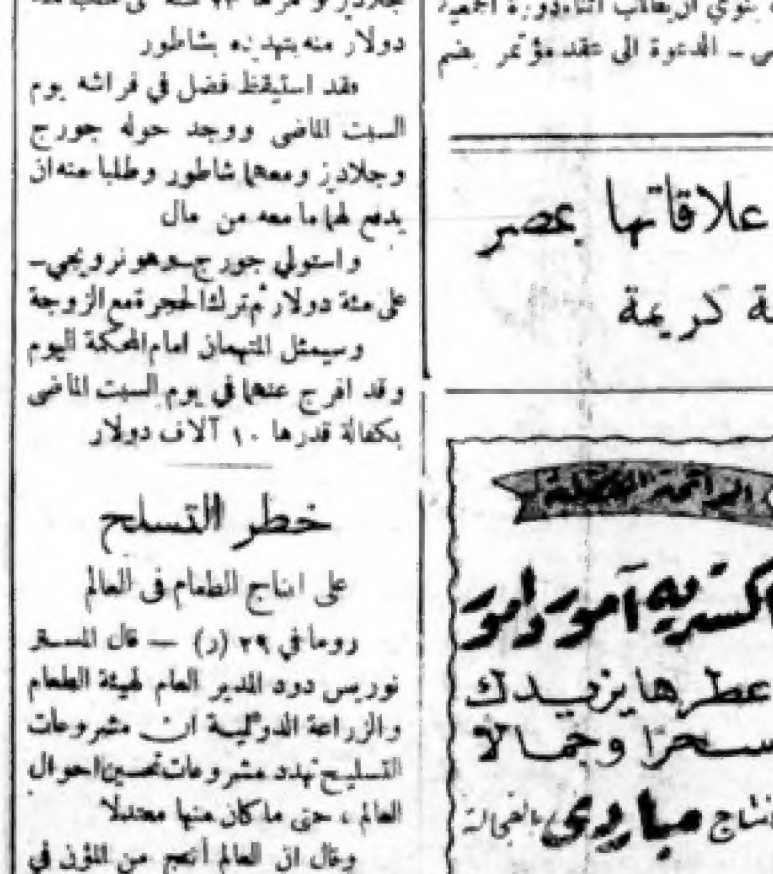 دولار منه بتهديده بشاطور
فقد استيقظ فضل في فراشه يوم
السبت الماضى ووجد حوله جورج
وجلاديز ومعهما شاطور وطلبا منه ان
يدفع لهما ما معه من مال
واستولي جورج ـ وهو نرويجي ـ
على مئة دولار ثم ترك الحجرة مع الزوجة
وسيمثل المتهمان امام المحكمة اليوم
وقد افرج عنهما في يوم السبت الماضى
بكفالة قدرها ١٠ آلاف دولار
خطر التسلح
على انتاج الطعام فى العالم
روما في ٢٩ (ر) — قال المستر
نوريس دود المدير العام لهيئة الطعام
والزراعة الدولية ان مشروعات
التسليح تهدد مشروعات تحسين احوال
العالم ، حتى ما كان منها معتدلا
وقال ان العالم أنتج من المؤن في
ينوي ان يطالب اثناء دورة الجمعية
ـ الدعوة الى عقد مؤتمر يضم
علاقاتها بمصر
كريمة
آمور وامور
عطرها يزيدك
سحرا وجمالا
بالفجالة